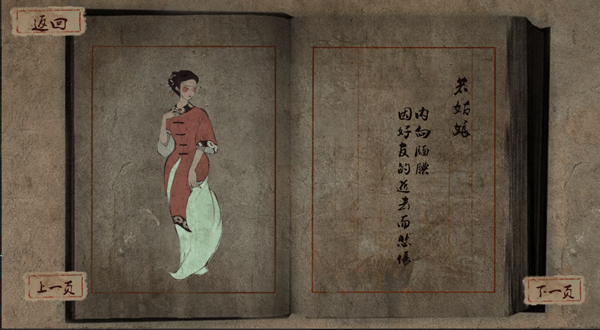 返回
姑娘
内向腼腆
因好友的逝去而
上一页
下一页